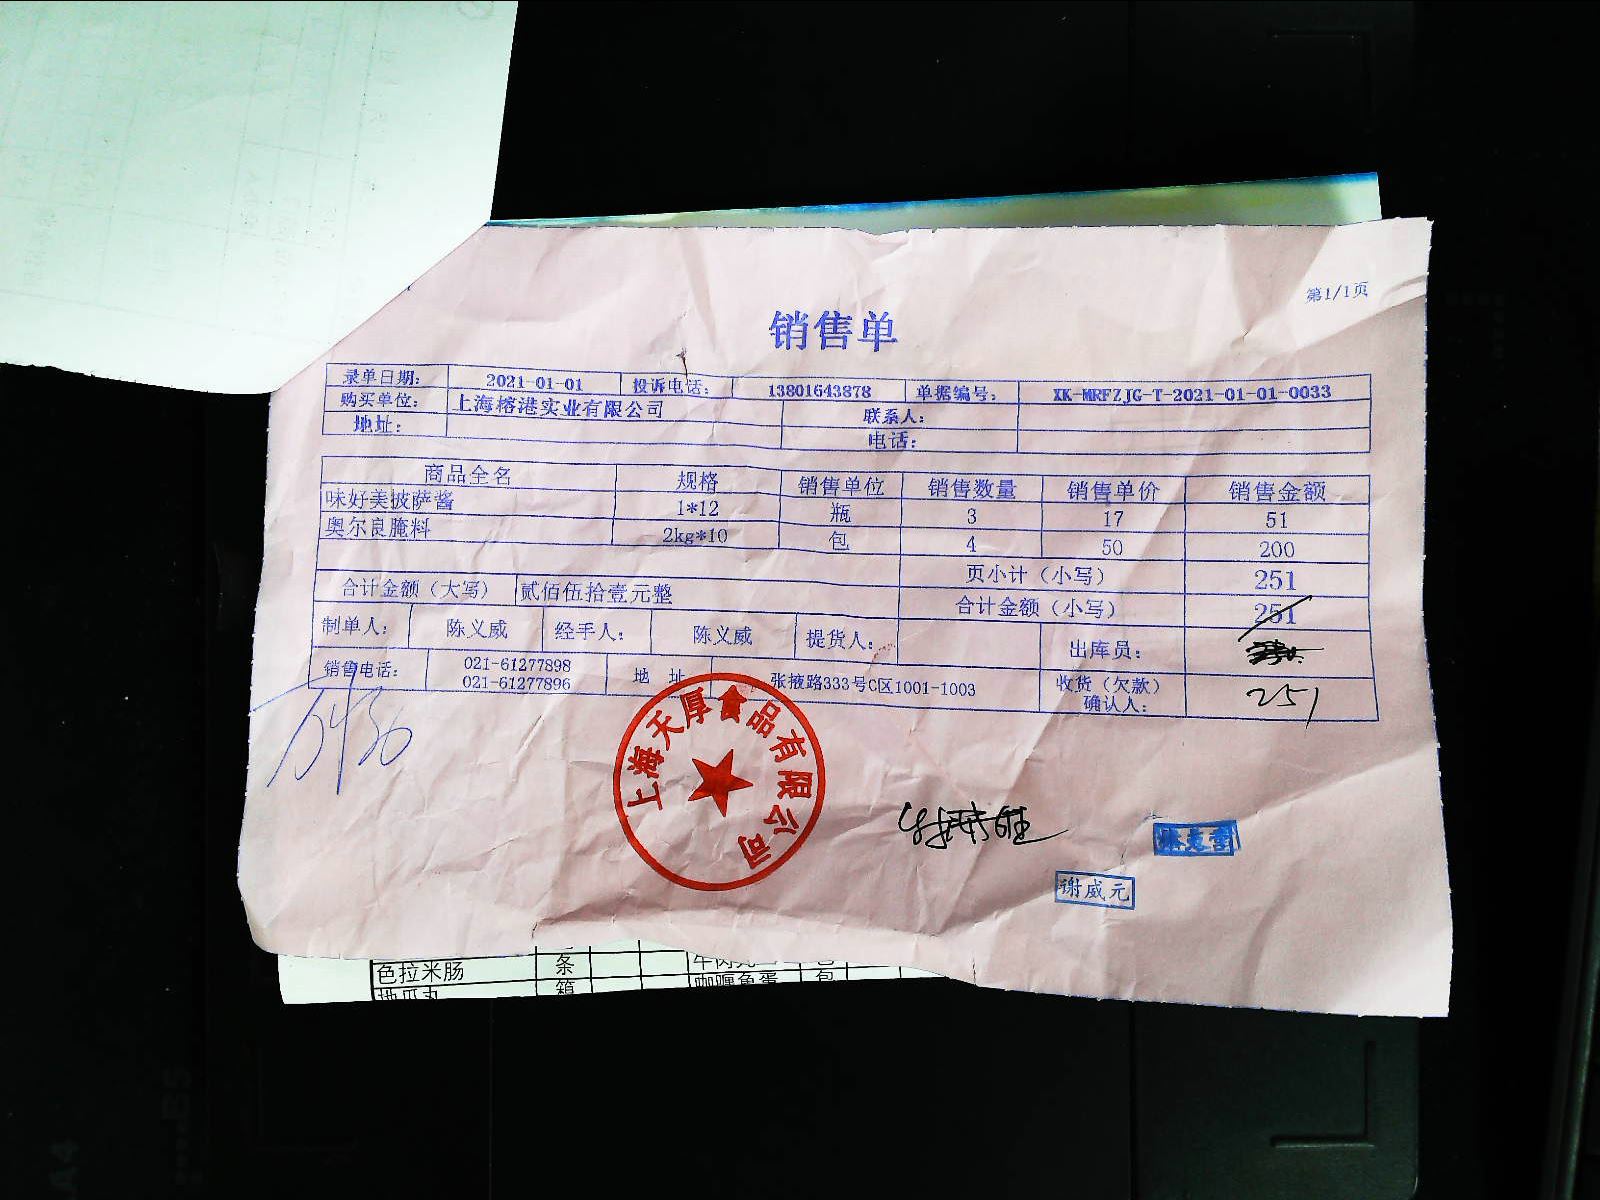 第1/1页
销售单
录单日期： 2021-01-01 投诉电话： 13801643878 单据编号： XK-MRFZJG-T-2021-01-01-0033
购买单位： 上海榕港实业有限公司 联系人：
地址： 电话：
商品全名 规格 销售单位 销售数量 销售单价 销售金额
味好美披萨酱 1*12 瓶 3 17 51
奥尔良腌料 2kg*10 包 4 50 200
页小计（小写） 251
合计金额（大写） 贰佰伍拾壹元整 合计金额（小写） 251
制单人： 陈义威 经手人： 陈义威 提货人： 出库员：
销售电话： 021-61277898 021-61277896 地 址 张掖路333号C区1001-1003 收货（欠款）确认人： 251
上海天厚食品有限公司
谢威元
色拉米肠 条
地瓜丸 箱 咖喱鱼蛋 包